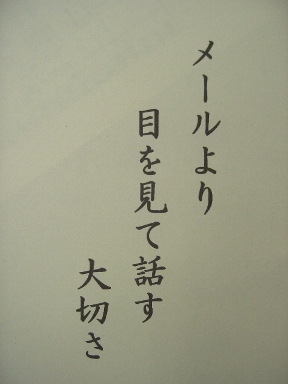 メールより
目を見て話す
大切さ